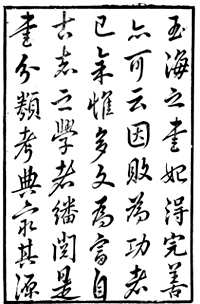 玉海之書始得完善
亦可云因敗為功者
已余惟多文為富自
古志之學者繙閱是
書分類考典其源